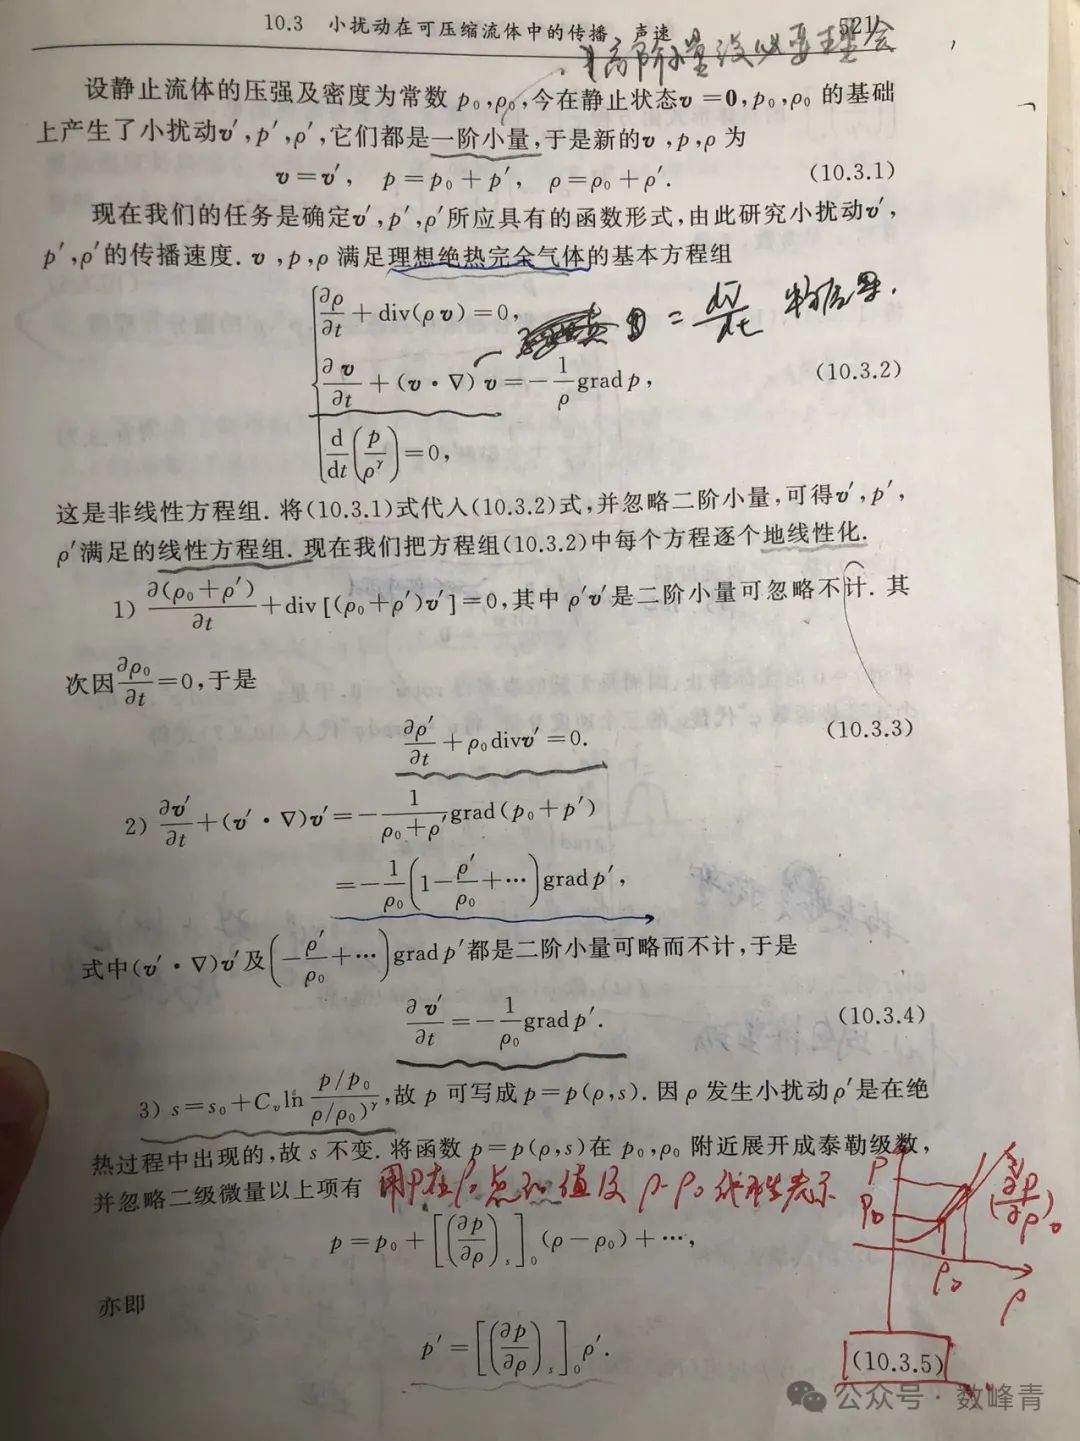 10.3 小扰动在可压缩流体中的传播 声速 521
高阶小量没必要理会
设静止流体的压强及密度为常数 p₀,ρ₀,今在静止状态v =0,p₀,ρ₀ 的基础
上产生了小扰动v′,p′,ρ′,它们都是一阶小量,于是新的v ,p,ρ 为
v=v′, p=p₀+p′, ρ=ρ₀+ρ′. (10.3.1)
现在我们的任务是确定v′,p′,ρ′所应具有的函数形式,由此研究小扰动v′,
p′,ρ′的传播速度. v ,p,ρ 满足理想绝热完全气体的基本方程组
∂ρ/∂t + div(ρv)=0,
= dv/dt 物质导.
∂v/∂t + (v·∇)v = -1/ρ grad p, (10.3.2)
d/dt (p/ρ^γ)=0,
这是非线性方程组. 将(10.3.1)式代入(10.3.2)式,并忽略二阶小量,可得v′,p′,
ρ′满足的线性方程组. 现在我们把方程组(10.3.2)中每个方程逐个地线性化.
1) ∂(ρ₀+ρ′)/∂t + div[(ρ₀+ρ′)v′]=0,其中 ρ′v′是二阶小量可忽略不计. 其
次因 ∂ρ₀/∂t =0,于是
∂ρ′/∂t + ρ₀divv′=0. (10.3.3)
2) ∂v′/∂t + (v′·∇)v′ = -1/(ρ₀+ρ′) grad(p₀+p′)
= -1/ρ₀ (1-ρ′/ρ₀+⋯) grad p′,
式中(v′·∇)v′及(-ρ′/ρ₀+⋯)grad p′都是二阶小量可略而不计,于是
∂v′/∂t = -1/ρ₀ grad p′. (10.3.4)
3) s=s₀+Cᵥln (p/p₀)/(ρ/ρ₀)^γ,故 p 可写成 p=p(ρ,s). 因 ρ 发生小扰动ρ′是在绝
热过程中出现的,故 s 不变. 将函数 p=p(ρ,s)在 p₀,ρ₀ 附近展开成泰勒级数,
并忽略二级微量以上项有 用P在ρ₀点的值及ρ-ρ₀线性表示
p=p₀+[(∂p/∂ρ)ₛ]₀(ρ-ρ₀)+⋯,
P
P₀
(∂p/∂ρ)₀
ρ₀
ρ
亦即
p′=[(∂p/∂ρ)ₛ]₀ρ′. (10.3.5)
公众号·数峰青